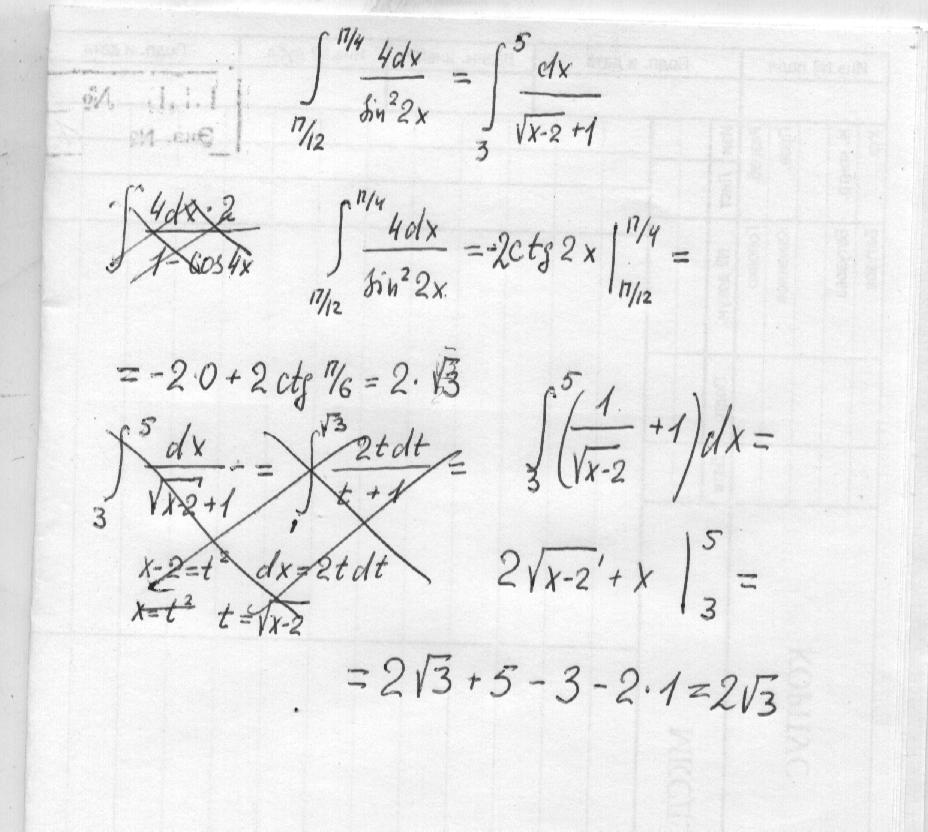 ∫_{π/12}^{π/4} 4dx / sin²2x = ∫_3^5 dx / (√(x-2) + 1)
∫ 4dx·2 / (1 - cos4x)
∫_{π/12}^{π/4} 4dx / sin²2x = -2ctg2x |_{π/12}^{π/4} =
= -2·0 + 2ctg π/6 = 2·√3
∫_3^5 dx / (√(x-2) + 1) = ∫_1^{√3} 2tdt / (t + 1) =
x-2=t² dx=2tdt
x=t² t=√(x-2)
∫_3^5 (1/√(x-2) + 1) dx =
2√(x-2) + x |_3^5 =
= 2√3 + 5 - 3 - 2·1 = 2√3